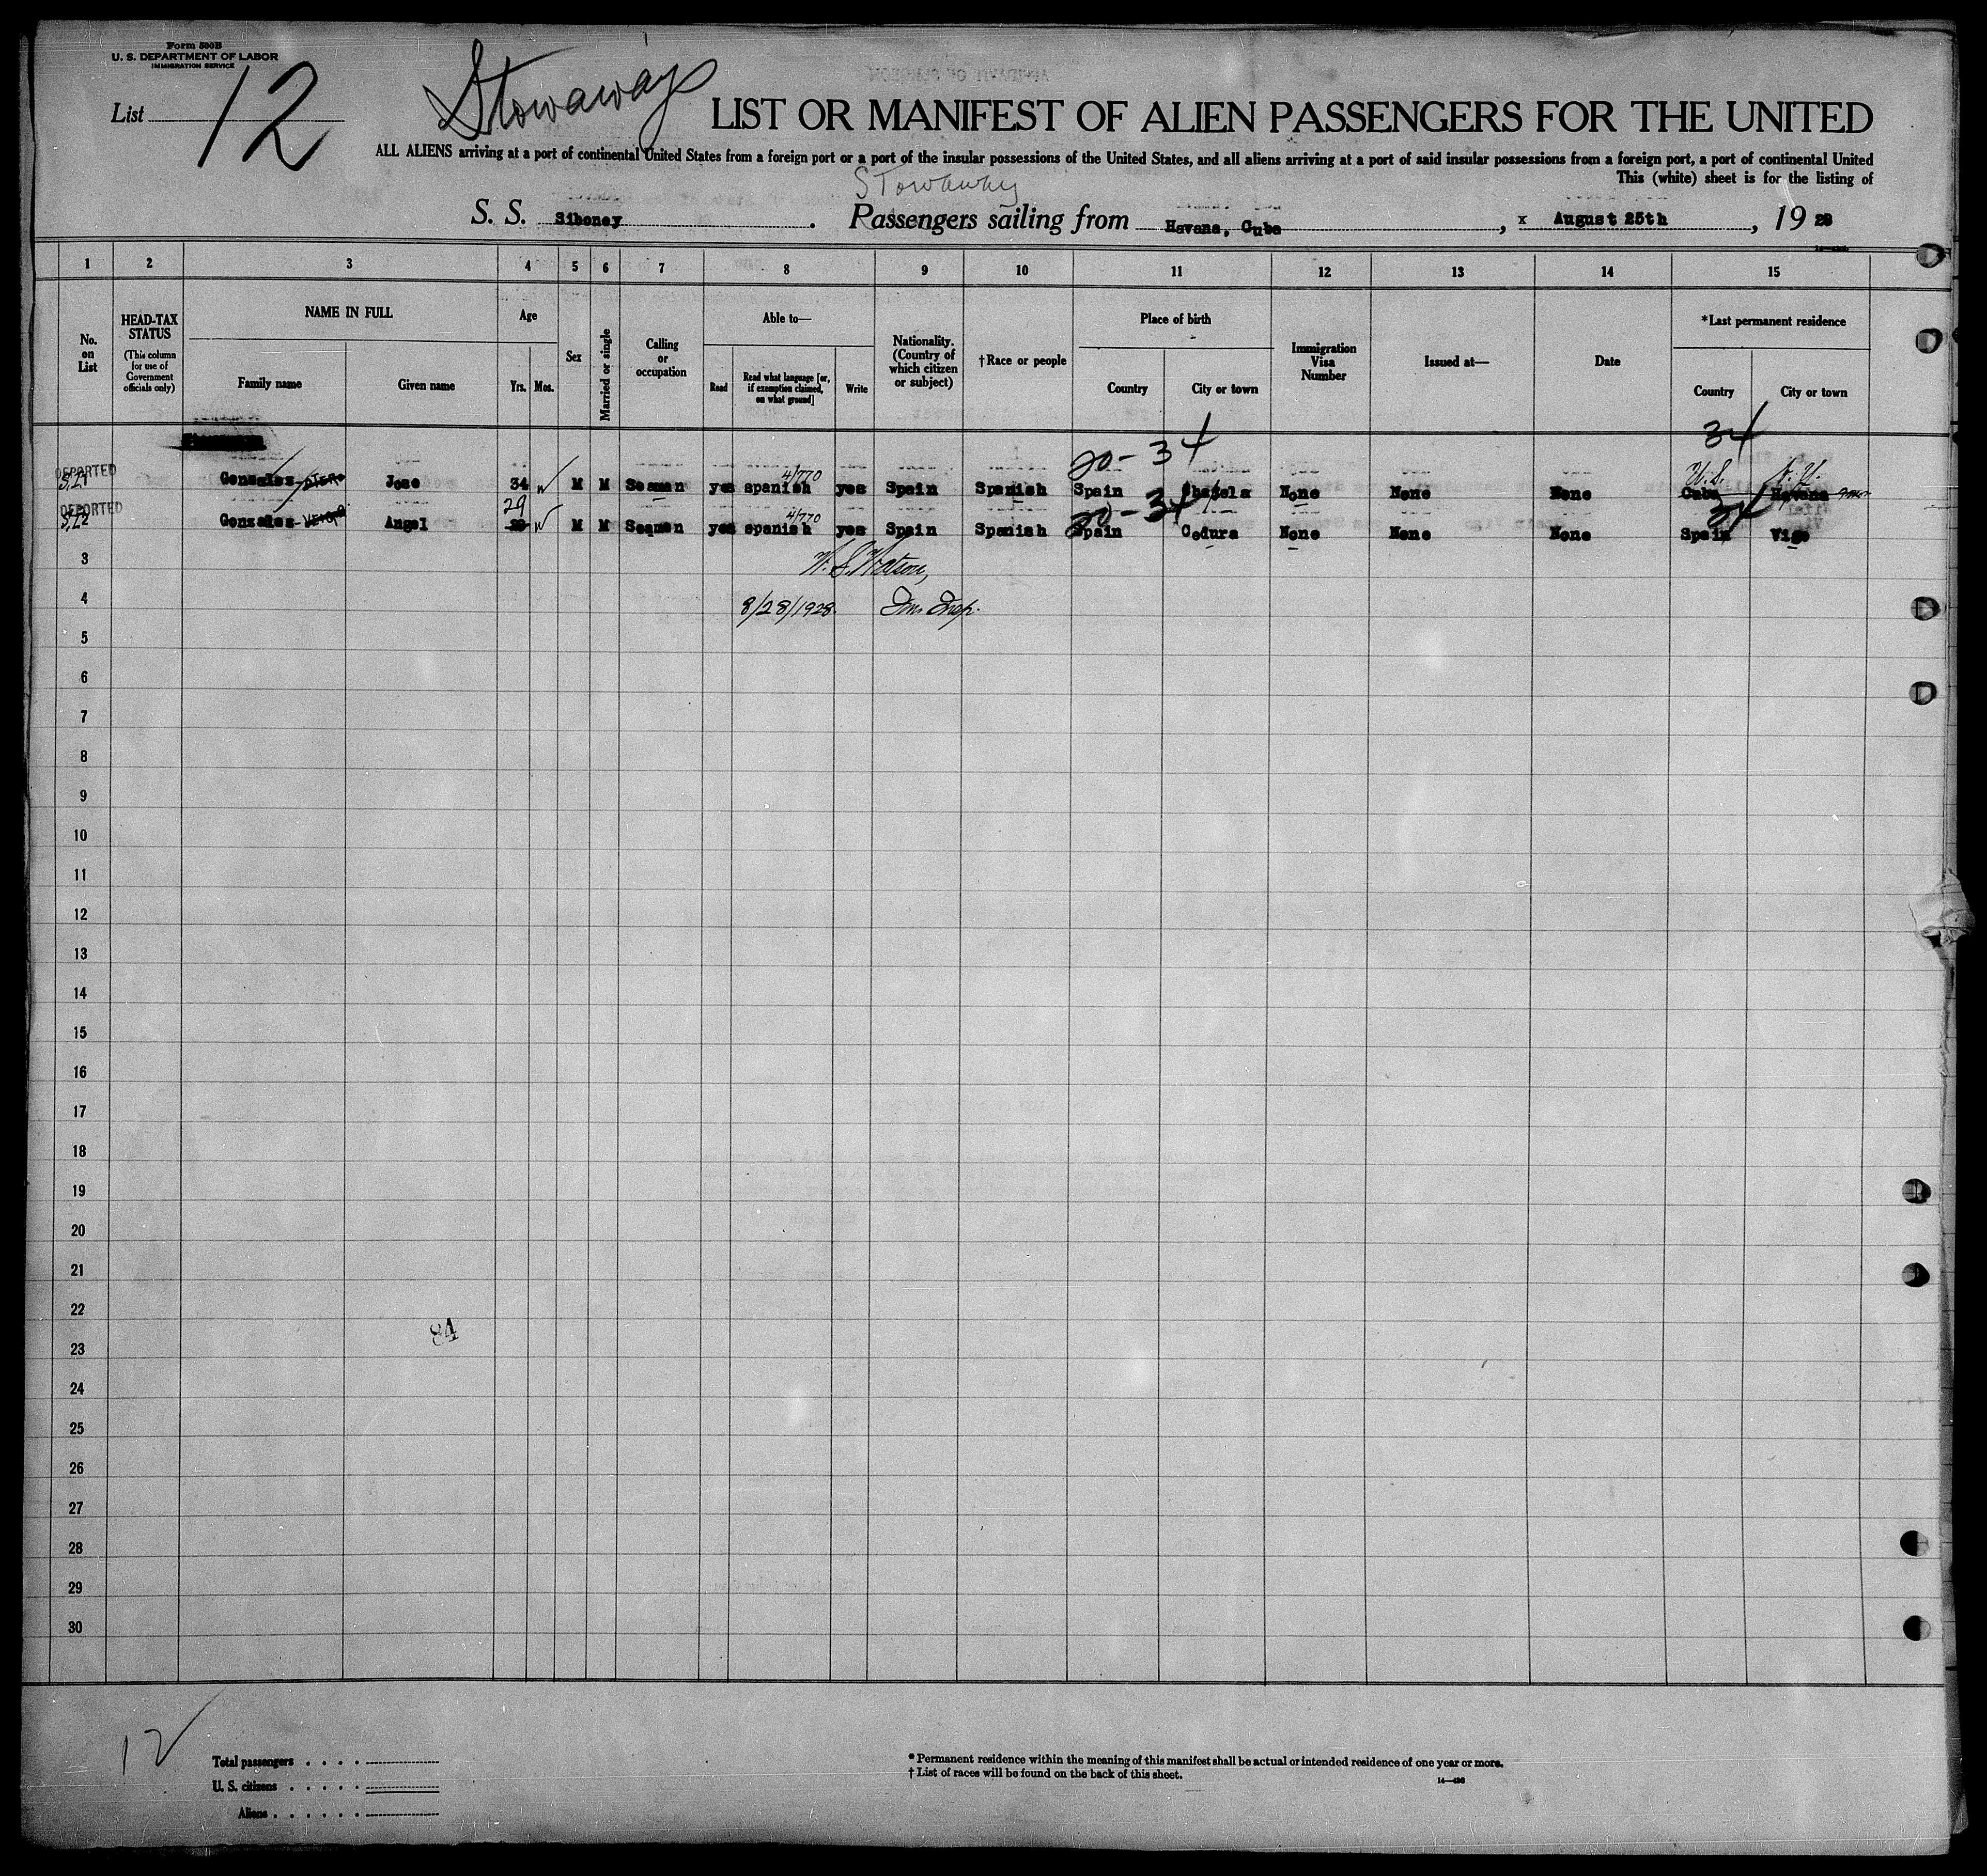 Form 500B
U. S. DEPARTMENT OF LABOR
IMMIGRATION SERVICE
List 12
Stowaways
LIST OR MANIFEST OF ALIEN PASSENGERS FOR THE UNITED
ALL ALIENS arriving at a port of continental United States from a foreign port or a port of the insular possessions of the United States, and all aliens arriving at a port of said insular possessions from a foreign port, a port of continental United
This (white) sheet is for the listing of
Stowaway
S. S. Siboney . Passengers sailing from Havana, Cuba , x August 25th , 19 28
1 2 3 4 5 6 7 8 9 10 11 12 13 14 15
No. on List
HEAD-TAX STATUS (This column for use of Government officials only)
NAME IN FULL
Family name Given name
Age
Yrs. Mos.
Sex
Married or single
Calling or occupation
Able to—
Read Read what language [or, if exemption claimed, on what ground] Write
Nationality. (Country of which citizen or subject)
†Race or people
Place of birth
Country City or town
Immigration Visa Number
Issued at—
Date
*Last permanent residence
Country City or town
20-34 34
DEPORTED 4/770 U.S. N.Y.
1 Gonzalez Jose 34 M M Seaman yes spanish yes Spain Spanish Spain None None None Cuba Havana
DEPORTED 29 4/770 20-34 34
2 Gonzalez Angel 29 M M Seaman yes spanish yes Spain Spanish Spain Cedura None None None Spain Vigo
3 W. S. Watson,
4 8/28/1928. Im. Insp.
5
6
7
8
9
10
11
12
13
14
15
16
17
18
19
20
21
22
84
23
24
25
26
27
28
29
30
12
Total passengers
U. S. citizens
Aliens
* Permanent residence within the meaning of this manifest shall be actual or intended residence of one year or more.
† List of races will be found on the back of this sheet.